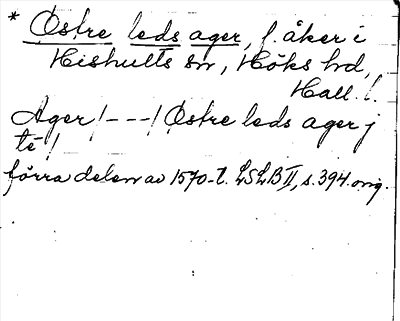 * Østre leds ager, f. åker i
Hishults sn, Höks hd,
Hall. l.
Ager /---/ Østre leds ager j
té /
förra delen av 1570-t. LSLB II, s. 394. orig.